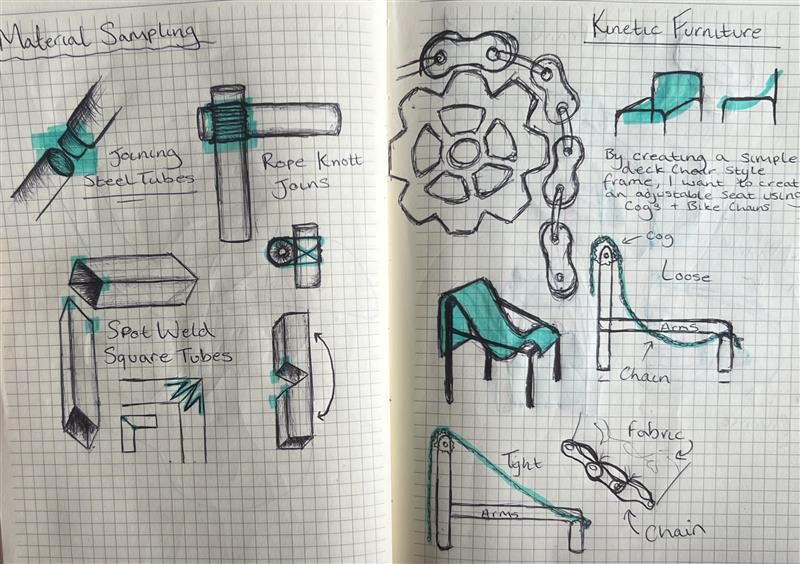 Material Sampling
Joining
Steel Tubes
Rope Knott
Joins
Spot Weld
Square Tubes
Kinetic Furniture
By creating a simple
deck chair style
frame, I want to creat
an adjustable seat using
Cogs + Bike Chains
Cog
Loose
Arms
Chain
Tight
Arms
Fabric
Chain